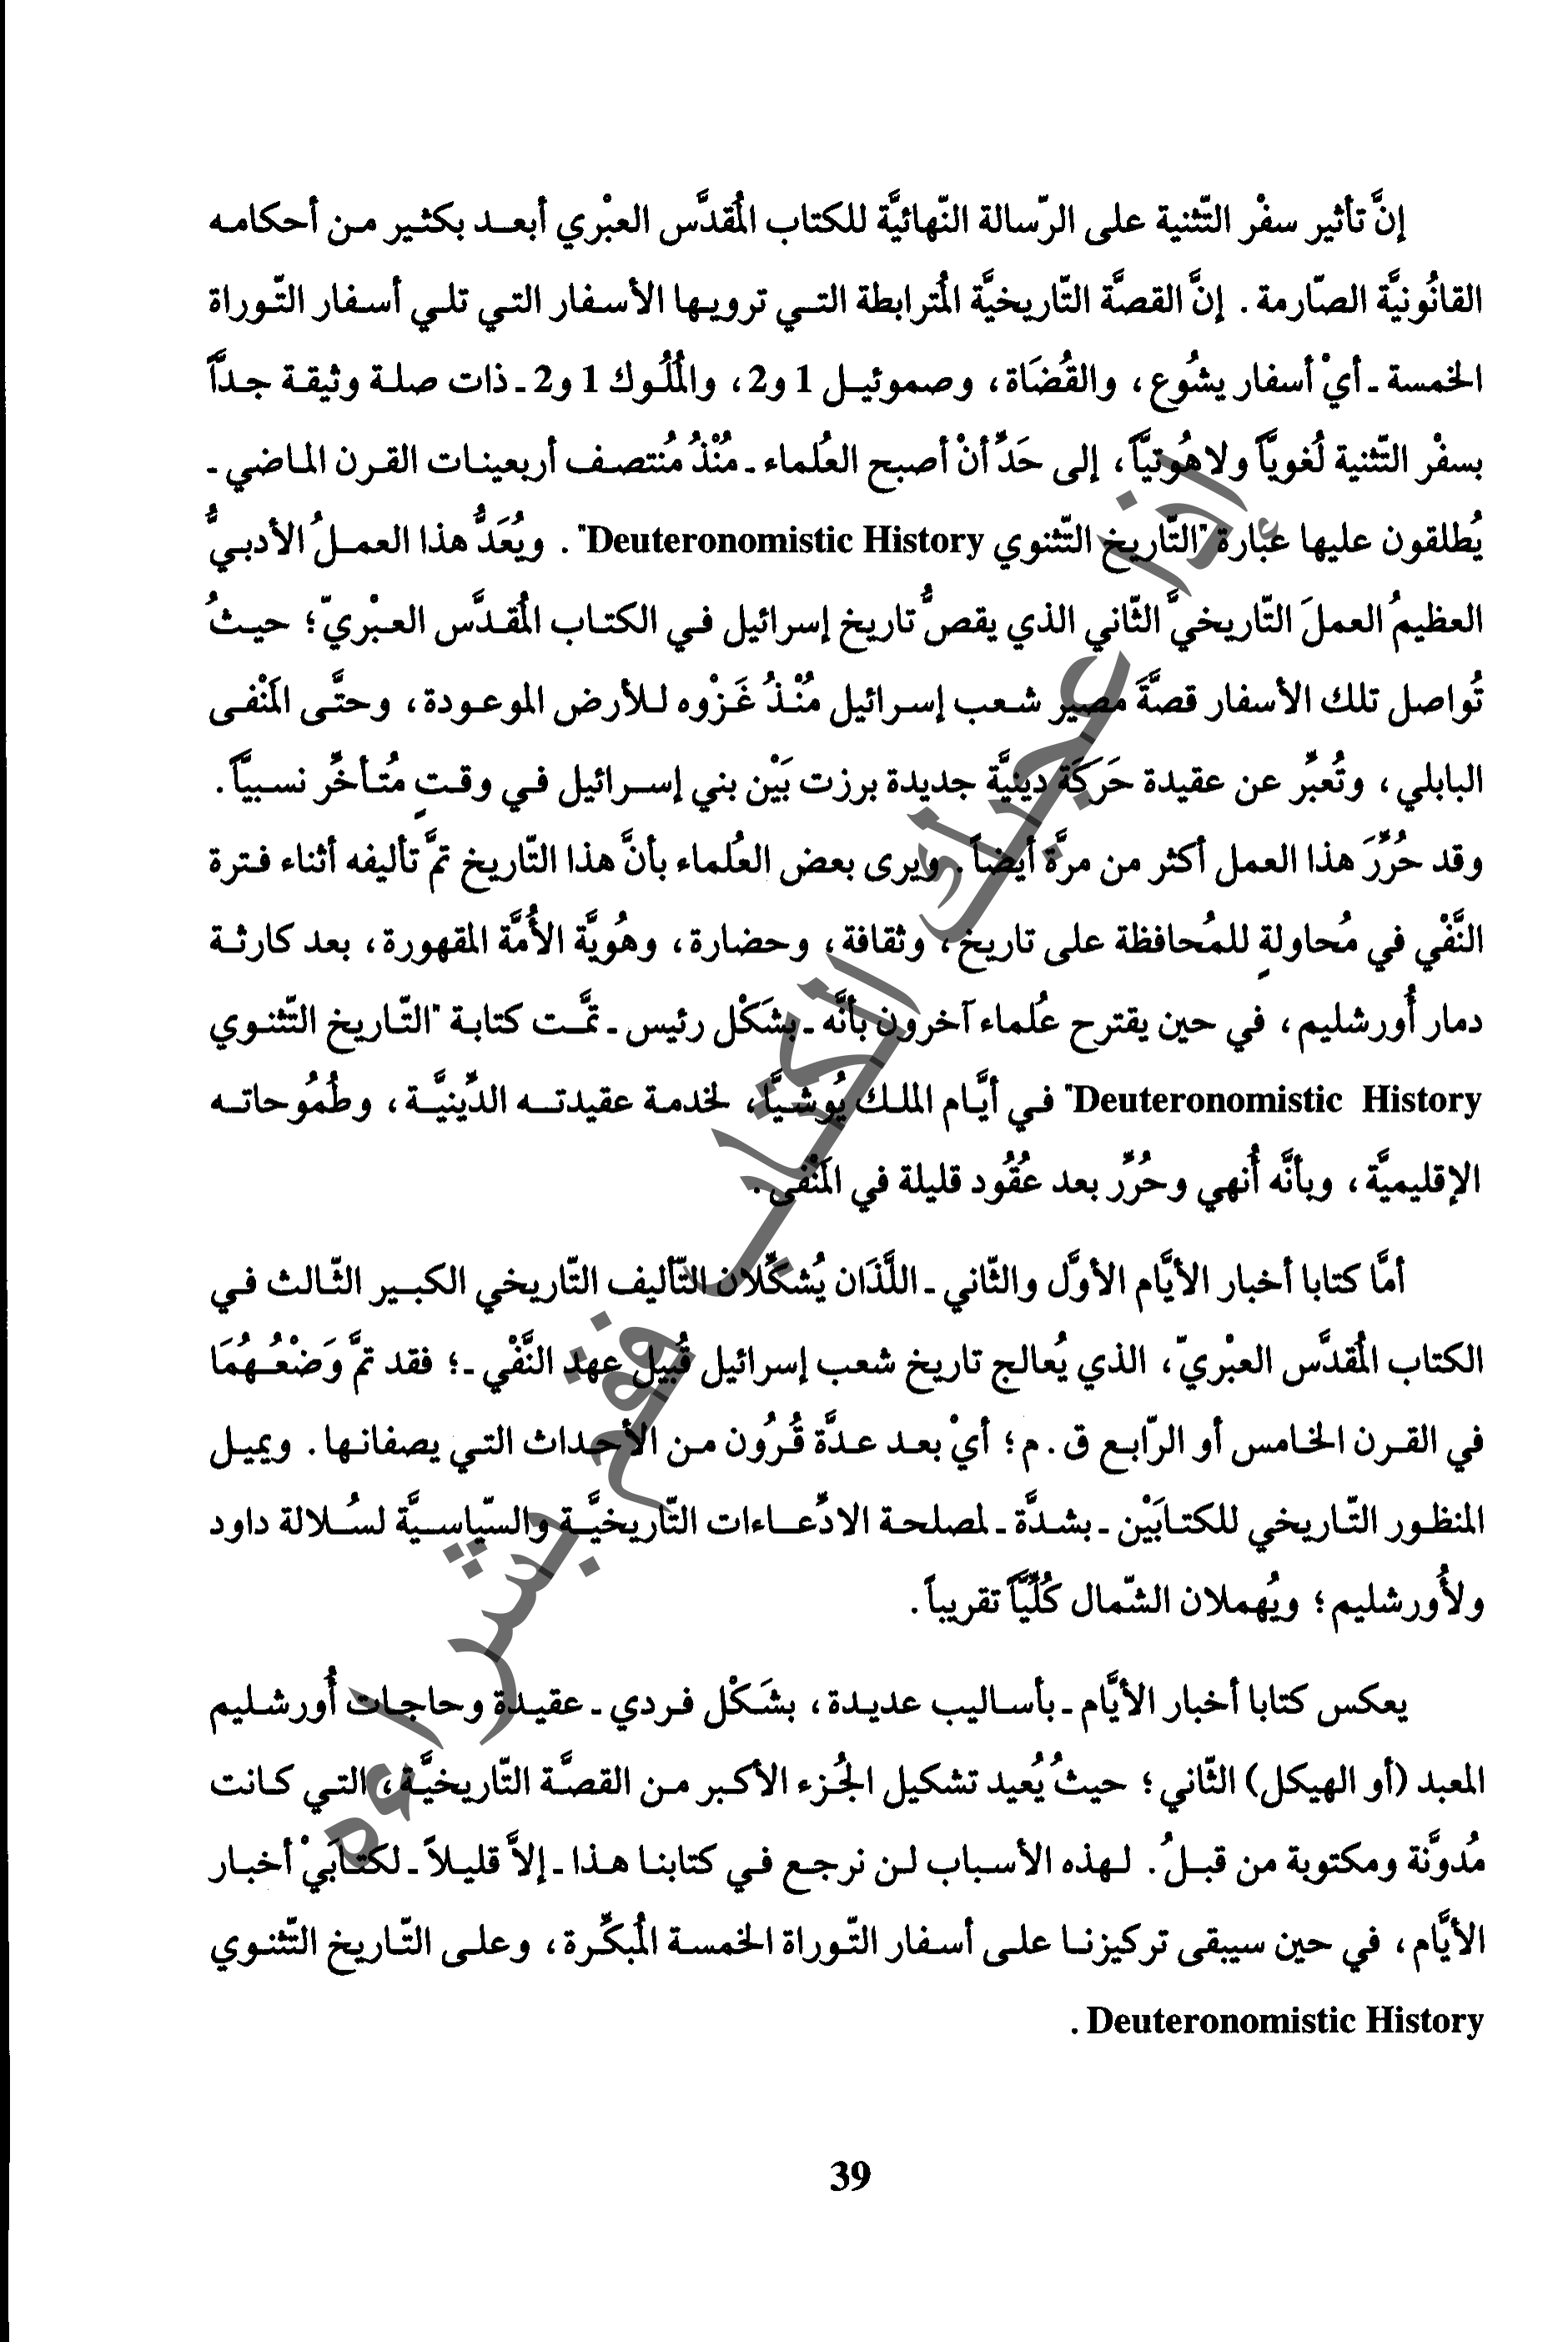 إنَّ تأثير سفْر التّثنية على الرّسالة النّهائيَّة للكتاب المُقدَّس العبْري أبعد بكثير من أحكامه
القانُونيَّة الصّارمة. إنَّ القصَّة التّاريخيَّة المُترابطة التي ترويها الأسفار التي تلي أسفار التّوراة
الخمسة ـ أيْ أسفار يشُوع، والقُضَاة، وصموئيل 1 و2، والمُلُوك 1 و2 ـ ذات صلة وثيقة جداًّ
بسفْر التّثنية لُغوياًّ ولاهُوتياًّ، إلى حَدٍّ أنْ أصبح العُلماء ـ مُنْذُ مُنتصف أربعينات القرن الماضي ـ
يُطلقون عليها عبارة "التّاريخ التّثنوي Deuteronomistic History". ويُعَدُّ هذا العملُ الأدبيُّ
العظيمُ العملَ التّاريخيَّ الثّاني الذي يقصُّ تاريخ إسرائيل في الكتاب المُقدَّس العبْريّ؛ حيثُ
تُواصل تلك الأسفار قصَّةَ مصير شعب إسرائيل مُنْذُ غَزْوه للأرض الموعودة، وحتَّى المَنْفى
البابلي، وتُعبِّر عن عقيدة حَرَكَة دينيَّة جديدة برزت بَيْن بني إسرائيل في وقتٍ مُتأخِّر نسبياًّ.
وقد حُرِّرَ هذا العمل أكثر من مرَّة أيضاً. ويرى بعض العُلماء بأنَّ هذا التّاريخ تمَّ تأليفه أثناء فترة
النَّفْي في مُحاولةٍ للمُحافظة على تاريخ، وثقافة، وحضارة، وهُويَّة الأُمَّة المقهورة، بعد كارثة
دمار أُورشليم، في حين يقترح عُلماء آخرون بأنَّه ـ بشَكْل رئيس ـ تمَّت كتابة "التّاريخ التّثنوي
Deuteronomistic History" في أيَّام الملك يُوشيَّا، لخدمة عقيدته الدِّينيَّة، وطُمُوحاته
الإقليميَّة، وبأنَّه أُنهي وحُرِّر بعد عُقُود قليلة في المَنْفى.
أمَّا كتابا أخبار الأيَّام الأوَّل والثّاني ـ اللَّذَان يُشكِّلان التّأليف التّاريخي الكبير الثّالث في
الكتاب المُقدَّس العبْريّ، الذي يُعالج تاريخ شعب إسرائيل قُبيل عهد النَّفْي ـ؛ فقد تمَّ وَضْعُهُمَا
في القرن الخامس أو الرّابع ق. م؛ أيْ بعد عدَّة قُرُون من الأحداث التي يصفانها. ويميل
المنظور التّاريخي للكتابَيْن ـ بشدَّة ـ لمصلحة الادِّعاءات التّاريخيَّة والسّياسيَّة لسُلالة داود
ولأُورشليم؛ ويُهملان الشّمال كُلِّيَّاً تقريباً.
يعكس كتابا أخبار الأيَّام ـ بأساليب عديدة، بشَكْل فردي ـ عقيدة وحاجات أُورشليم
المعبد (أو الهيكل) الثّاني؛ حيثُ يُعيد تشكيل الجُزء الأكبر من القصَّة التّاريخيَّة، التي كانت
مُدوَّنة ومكتوبة من قبلُ. لهذه الأسباب لن نرجع في كتابنا هذا ـ إلاَّ قليلاً ـ لكتابَيْ أخبار
الأيَّام، في حين سيبقى تركيزنا على أسفار التّوراة الخمسة المُبكِّرة، وعلى التّاريخ التّثنوي
Deuteronomistic History .
39
إذا عجبك الكتاب قم بشراءه